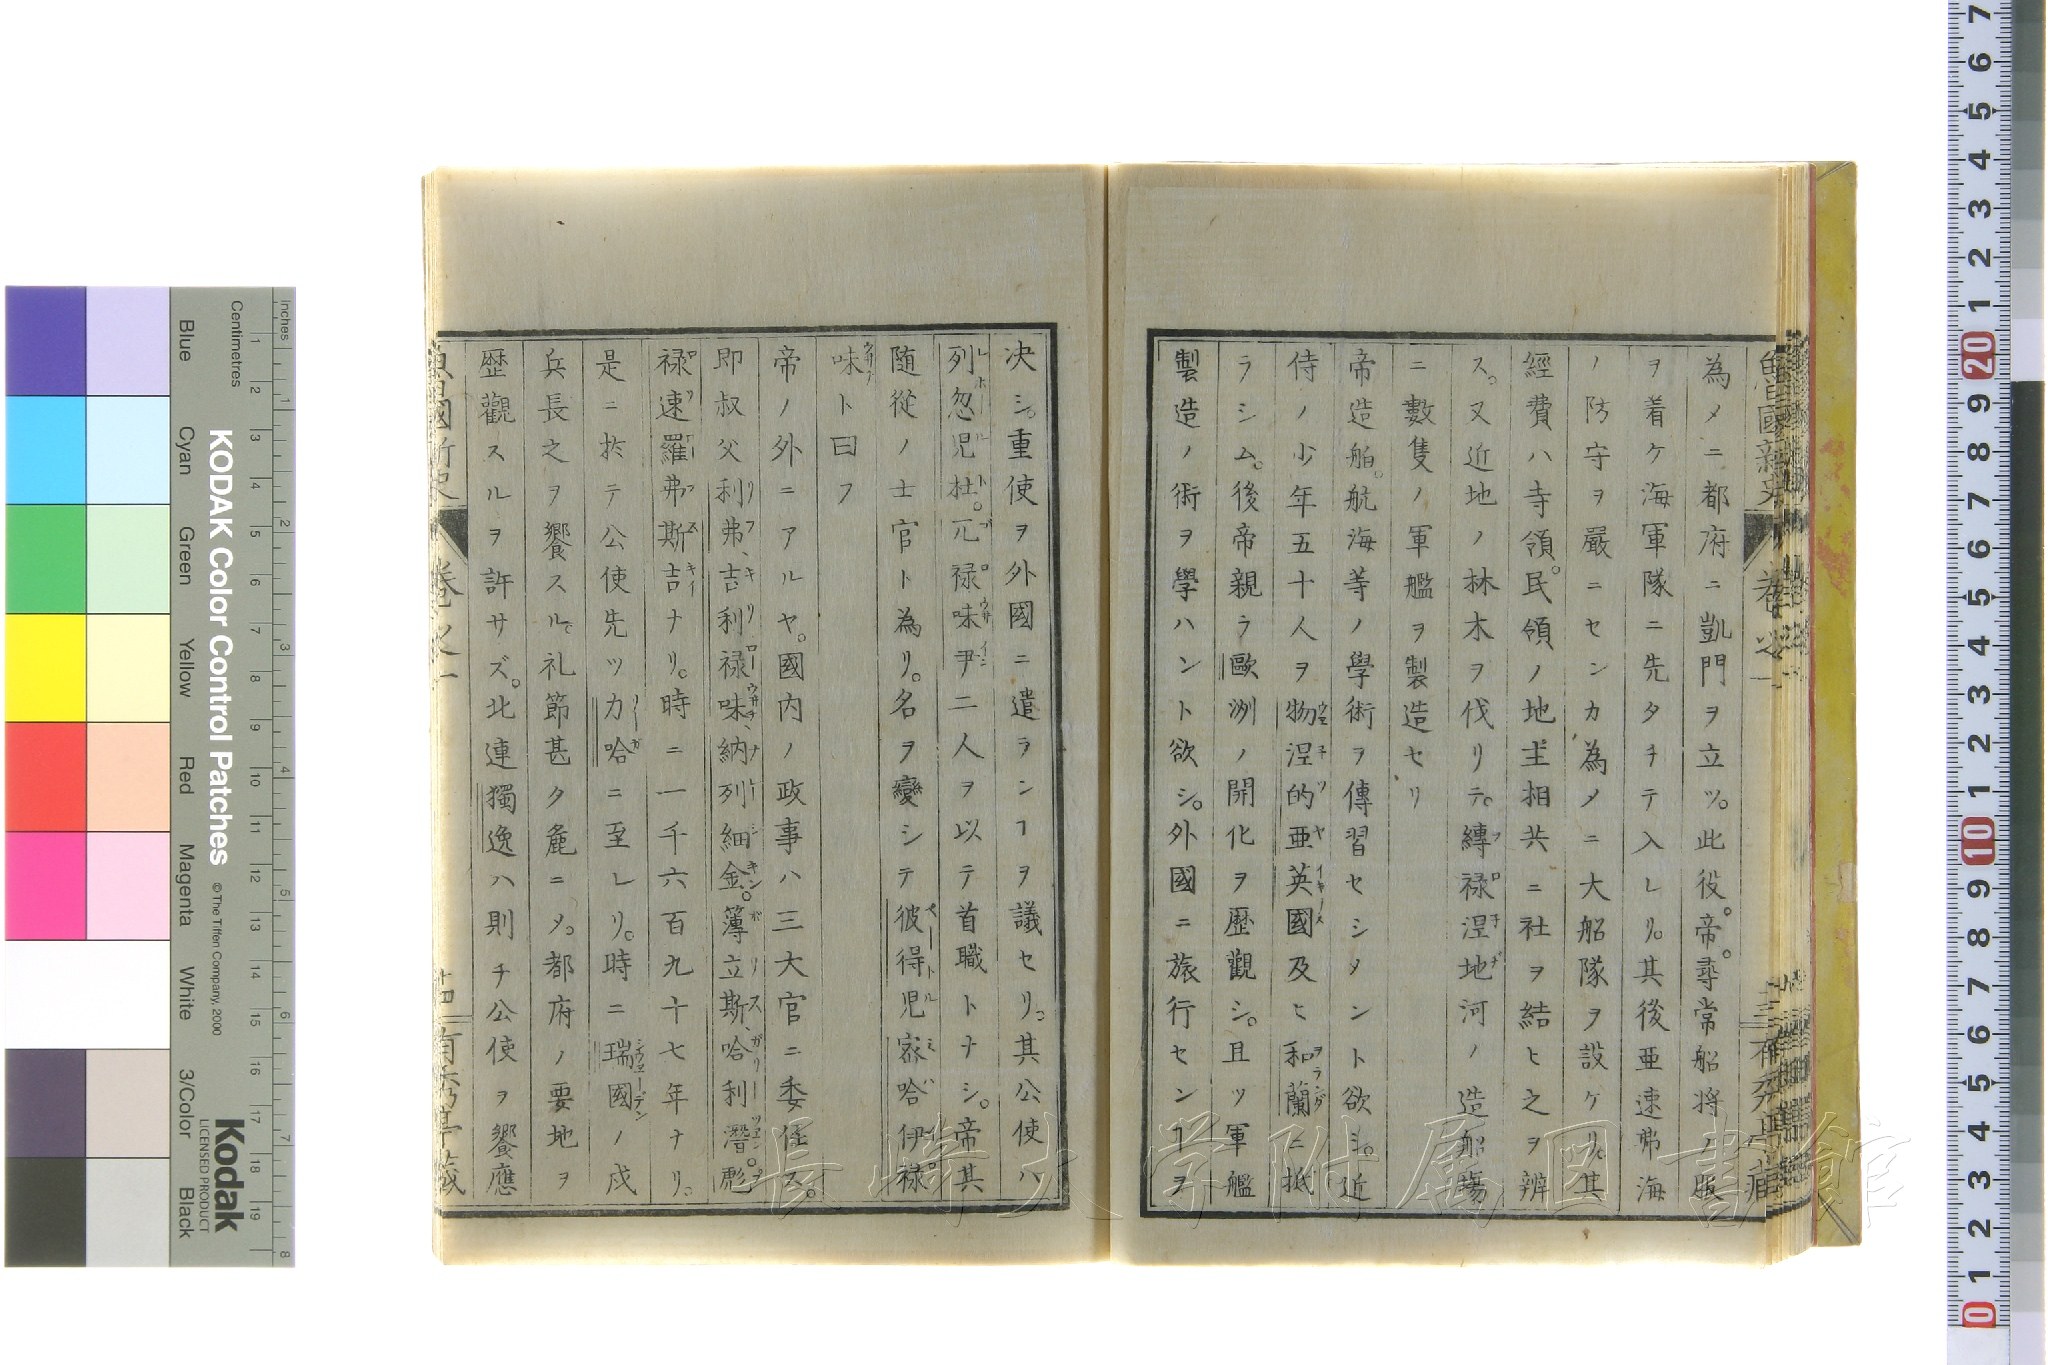 為メニ都府ニ凱門ヲ立ツ。此役。帝。尋常船将ノ服
ヲ着ケ海軍隊ニ先タチテ入レリ。其後亜速弗海
ノ防守ヲ嚴ニセンカ為メニ大船隊ヲ設ケリ。其
經費ハ寺領。民領ノ地主相共ニ社ヲ結ヒ之ヲ辨
ス。又近地ノ林木ヲ伐リテ。縛禄涅地河ノ造船場
ニ數隻ノ軍艦ヲ製造セリ
帝造船。航海等ノ學術ヲ傳習セシメント欲シ。近
侍ノ少年五十人ヲ物涅的亜英國及ヒ和蘭ニ抵
ラシム。後帝親ラ歐洲ノ開化ヲ歴觀シ。且ツ軍艦
製造ノ術ヲ學ハント欲シ。外國ニ旅行センヿヲ
決シ。重使ヲ外國ニ遣ランヿヲ議セリ。其公使ハ
列忽児杜。兀禄味尹二人ヲ以テ首職トナシ。帝其
随從ノ士官ト為リ。名ヲ變シテ彼得児宻哈伊禄
味ト曰フ
帝ノ外ニアルヤ。國内ノ政事ハ三大官ニ委任ス。
即叔父利弗、吉利禄味、納列細金。簿立斯、哈利潛。彪
禄速羅弗斯吉ナリ。時ニ一千六百九十七年ナリ。
是ニ於テ公使先ツ力哈ニ至レリ。時ニ瑞國ノ戍
兵長之ヲ饗スル礼節甚タ麁ニメ。都府ノ要地ヲ
歴觀スルヲ許サズ。北連獨逸ハ則チ公使ヲ饗應
魯國新史
卷之一
長崎大学附属図書館
KODAK Color Control Patches
© The Tiffen Company, 2000
Kodak
LICENSED PRODUCT
Centimetres
Inches
Blue
Cyan
Green
Yellow
Red
Magenta
White
3/Color
Black